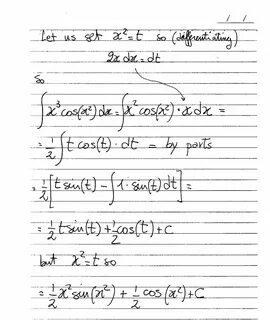 Let us set x²=t so (differentiating)
2x dx = dt
so
∫x³cos(x²)dx = ∫x²cos(x²)·x dx =
= 1/2 ∫ t cos(t)·dt = by parts
= 1/2 [t sin(t) - ∫1·sin(t)dt] =
= 1/2 t sin(t) + 1/2 cos(t) + C
but x²=t so
= 1/2 x² sin(x²) + 1/2 cos(x²) + C